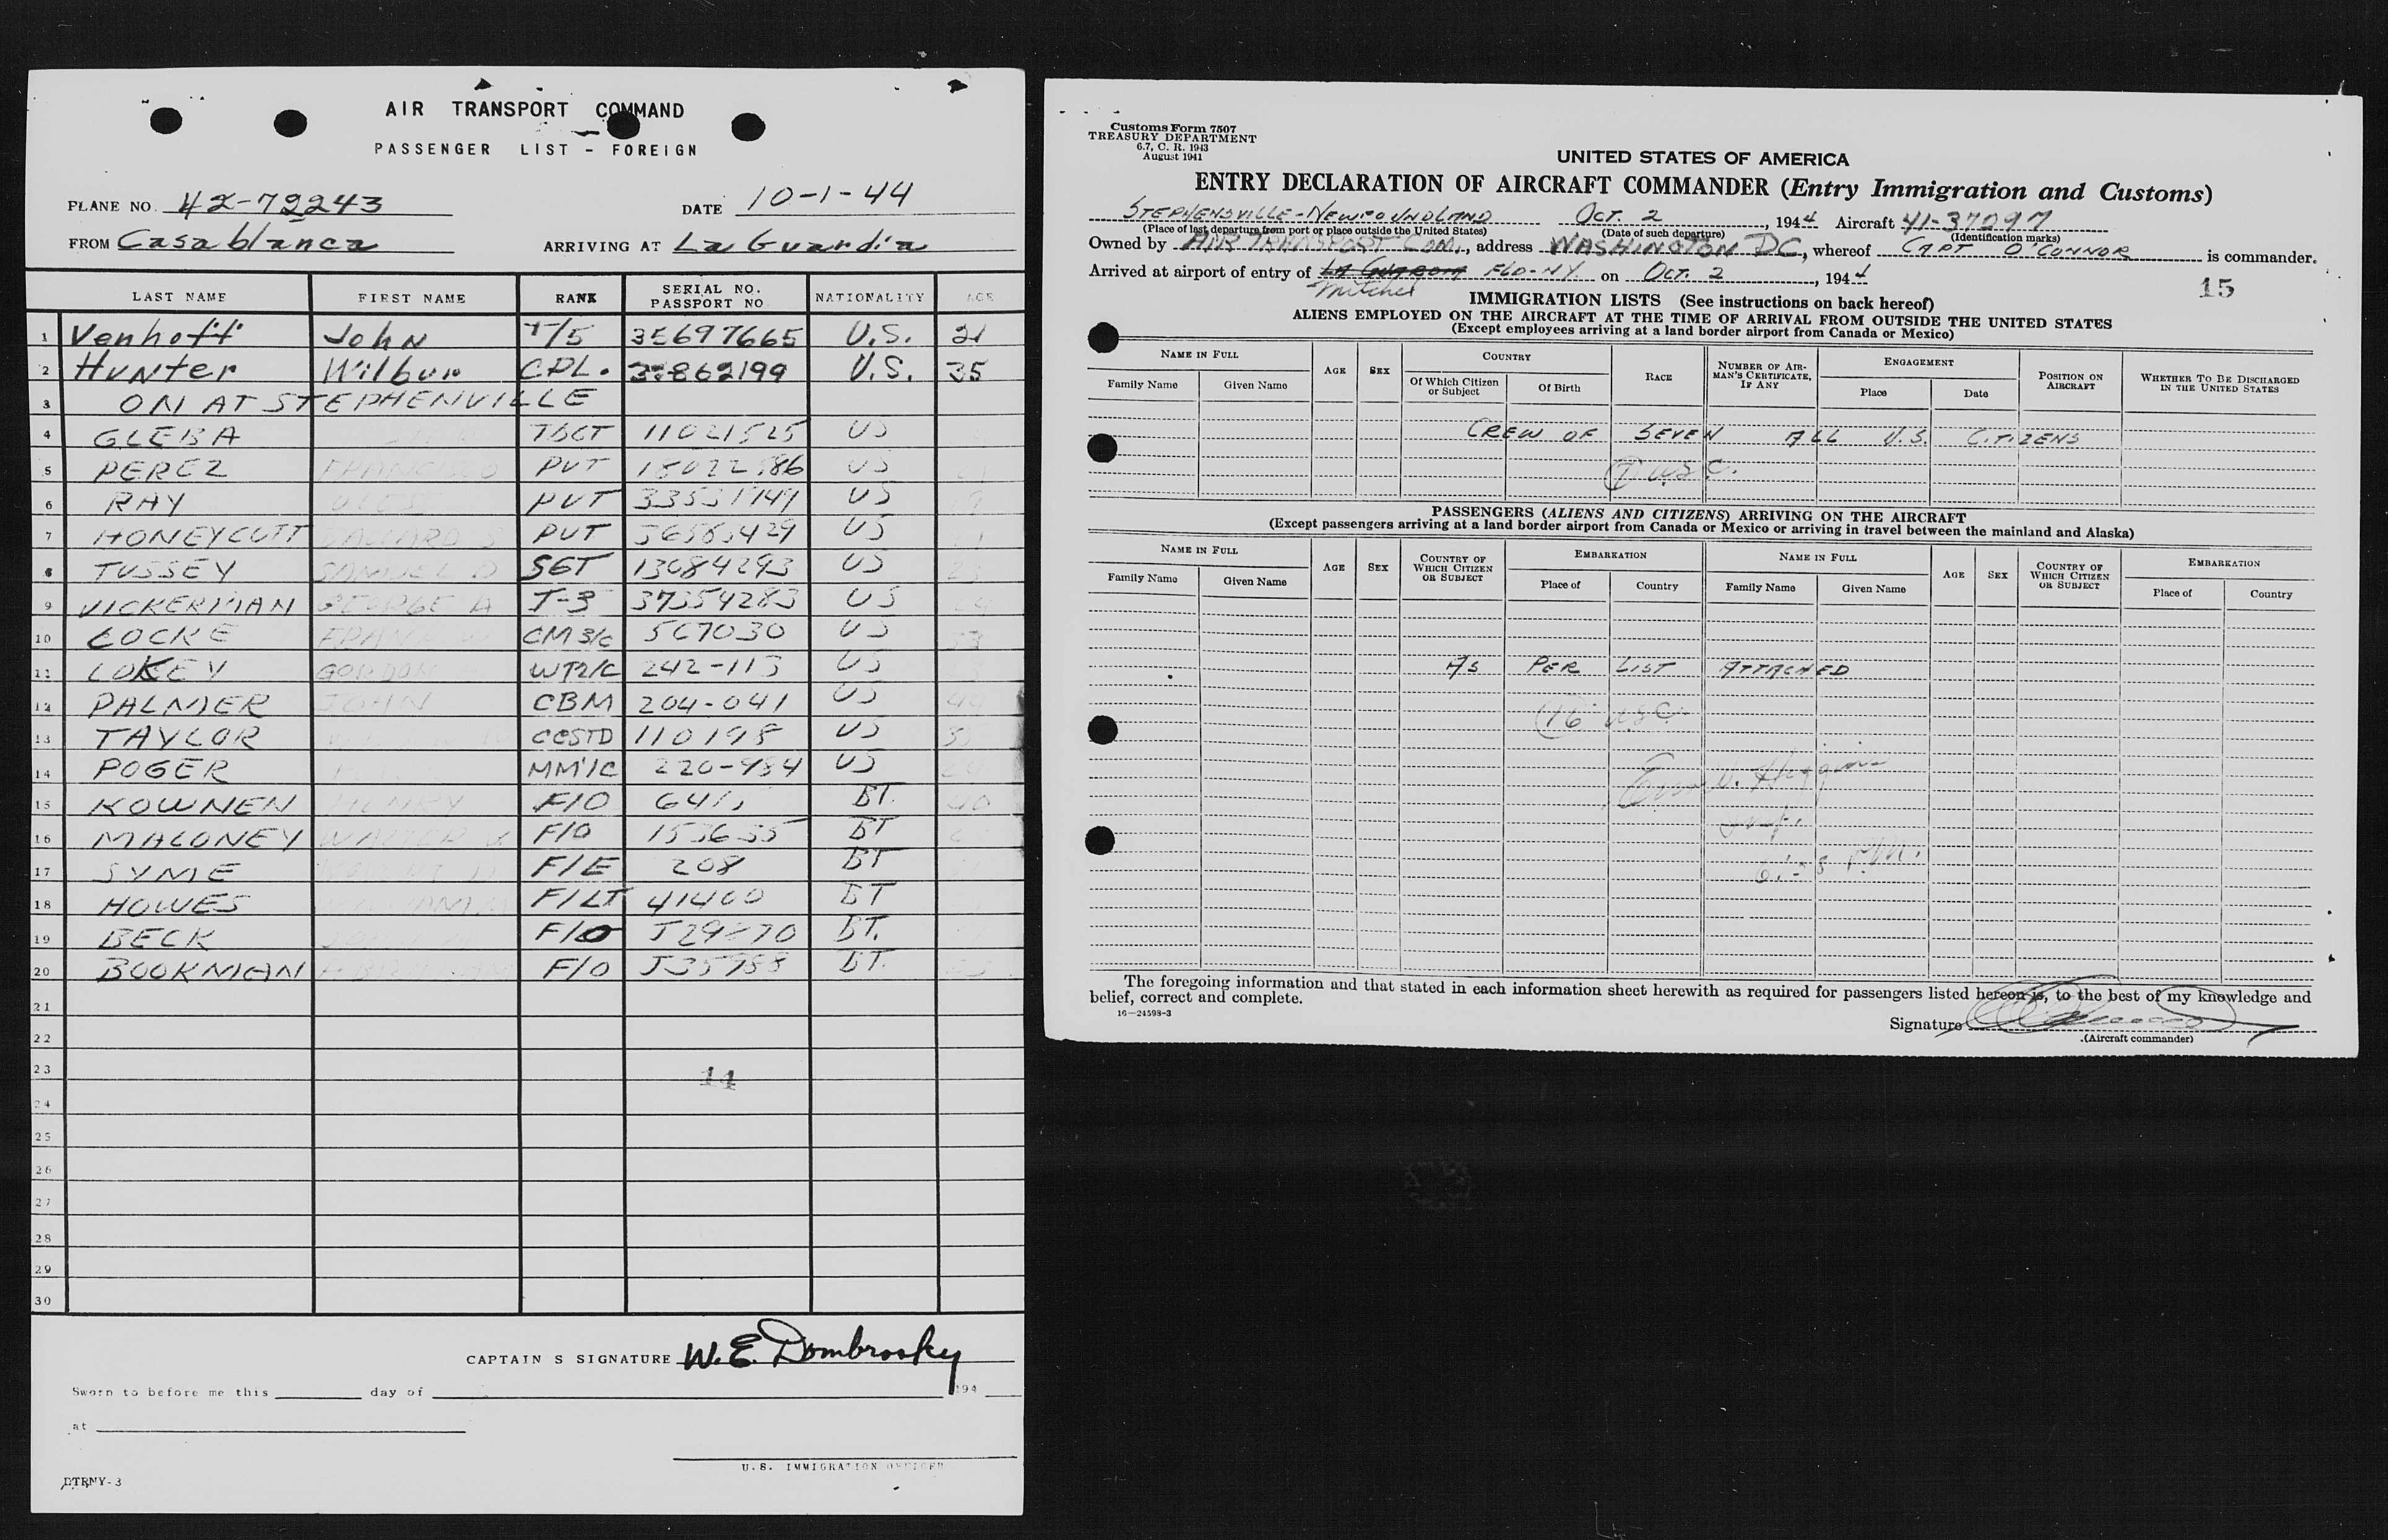 AIR TRANSPORT COMMAND
PASSENGER LIST - FOREIGN
PLANE NO. 42-72243 DATE 10-1-44
FROM Casablanca ARRIVING AT La Guardia
LAST NAME FIRST NAME RANK SERIAL NO. PASSPORT NO NATIONALITY AGE
1 Venhoff John T/5 35697665 U.S. 21
2 Hunter Wilbur CPL. 862199 U.S. 35
3 ON AT STEPHENVILLE
4 GLEBA 11021525 US
5 PEREZ FRANCISCO PVT US
6 RAY PVT US
7 HONEYCUTT BALLARD S PVT US
8 TUSSEY SAMUEL D SGT 13084293 US
9 VICKERMAN GEORGE A T-3 37354283 US
10 LOCKE CM3/C 567030 US
11 LOKEY GORDON WT2/C 242-113 US
12 PALMER JOHN CBM 204-041 US
13 TAYLOR CCSTD 110198 US
14 POGER MM1/C 220-984 US
15 KOWNEN HENRY F/O BT.
16 MALONEY WALTER F/O 153635 BT
17 SYME F/E 208 BT
18 HOWES F/LT 41400 BT
19 BECK F/O BT.
20 BOOKMAN F/O J35988 BT.
21
22
23 14
24
25
26
27
28
29
30
CAPTAIN S SIGNATURE W.E. Dombrosky
Sworn to before me this day of 194
at
U.S. IMMIGRATION OFFICER
DTRNY-3
Customs Form 7507
TREASURY DEPARTMENT
6.7, C. R. 1943
August 1941
UNITED STATES OF AMERICA
ENTRY DECLARATION OF AIRCRAFT COMMANDER (Entry Immigration and Customs)
STEPHENSVILLE-NEWFOUNDLAND OCT. 2, 1944 Aircraft 41-37297
(Place of last departure from port or place outside the United States) (Date of such departure) (Identification marks)
Owned by AIR TRANSPORT COM., address WASHINGTON DC, whereof CAPT O'CONNOR is commander.
Arrived at airport of entry of LA GUARDIA FLD-NY. on OCT. 2, 1944
Mitchel
15
IMMIGRATION LISTS (See instructions on back hereof)
ALIENS EMPLOYED ON THE AIRCRAFT AT THE TIME OF ARRIVAL FROM OUTSIDE THE UNITED STATES
(Except employees arriving at a land border airport from Canada or Mexico)
NAME IN FULL AGE SEX COUNTRY RACE NUMBER OF AIRMAN'S CERTIFICATE, IF ANY ENGAGEMENT POSITION ON AIRCRAFT WHETHER TO BE DISCHARGED IN THE UNITED STATES
Family Name Given Name Of Which Citizen or Subject Of Birth Place Date
CREW OF SEVEN ALL U.S. CITIZENS
7 U.S.C.
PASSENGERS (ALIENS AND CITIZENS) ARRIVING ON THE AIRCRAFT
(Except passengers arriving at a land border airport from Canada or Mexico or arriving in travel between the mainland and Alaska)
NAME IN FULL AGE SEX COUNTRY OF WHICH CITIZEN OR SUBJECT EMBARKATION NAME IN FULL AGE SEX COUNTRY OF WHICH CITIZEN OR SUBJECT EMBARKATION
Family Name Given Name Place of Country Family Name Given Name Place of Country
AS PER LIST ATTACHED
16 U.S.C.
The foregoing information and that stated in each information sheet herewith as required for passengers listed hereon is, to the best of my knowledge and
belief, correct and complete.
16—24598-3
Signature
(Aircraft commander)